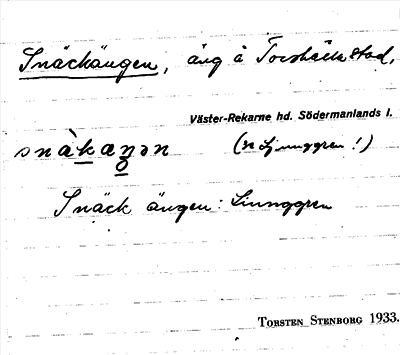 Snäckängen, äng å Torshälla stad,
Väster-Rekarne hd. Södermanlands l.
snàkæŋən (n Ljunggren!)
Snäck ängen: Ljunggren
TORSTEN STENBORG 1933.